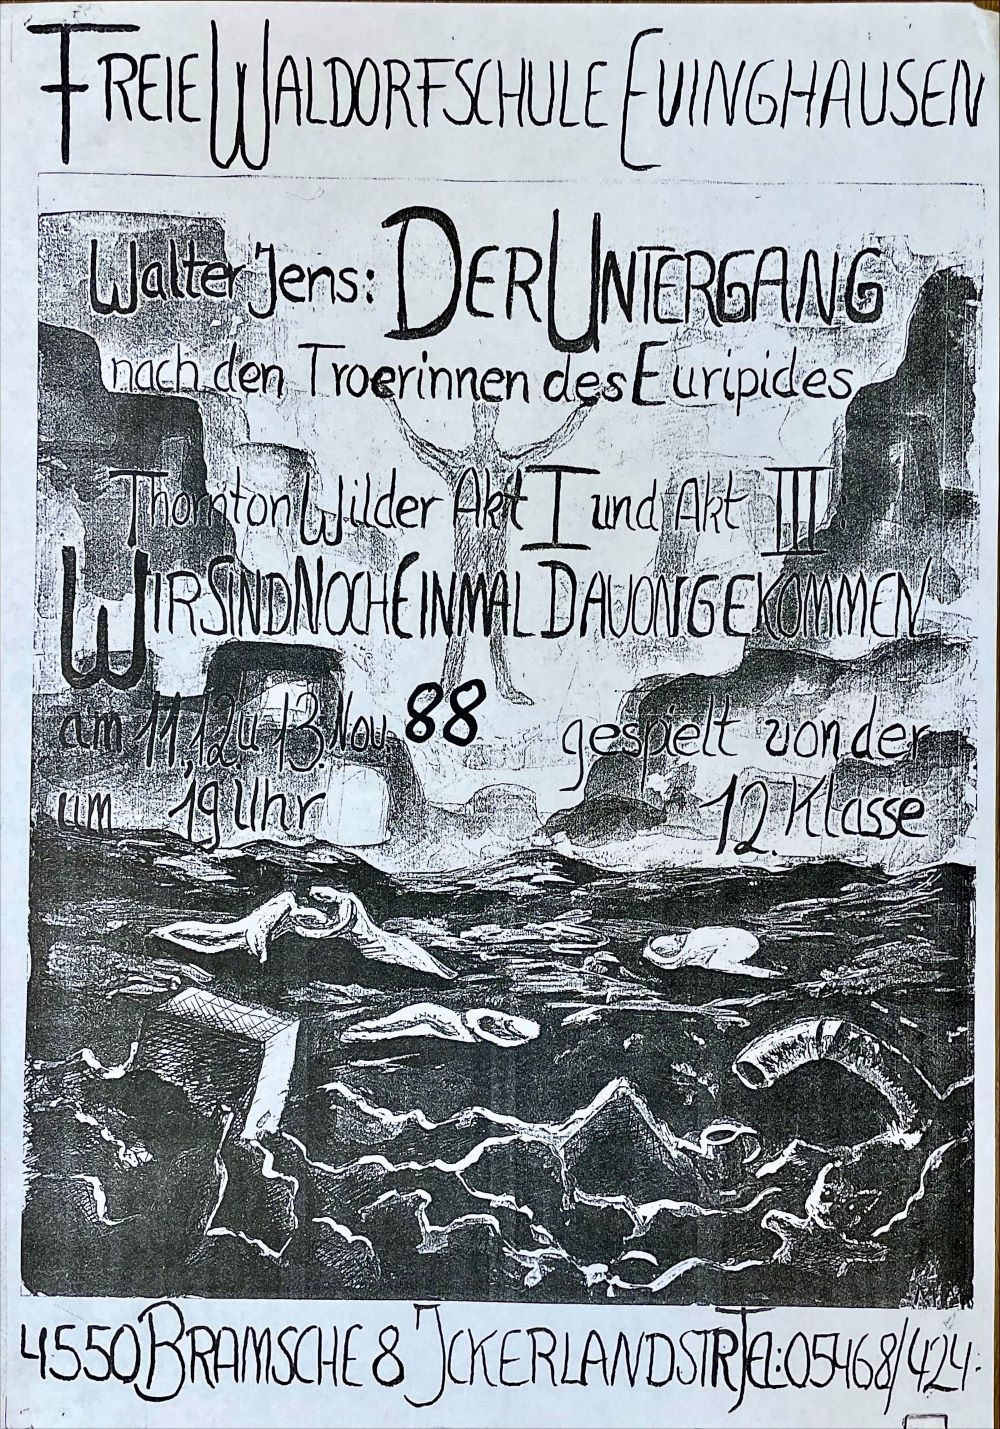 FREIE WALDORFSCHULE EVINGHAUSEN
Walter Jens: DER UNTERGANG
nach den Troerinnen des Euripides
Thornton Wilder Akt I und Akt III:
WIR SIND NOCH EINMAL DAVONGEKOMMEN
am 11, 12. u. 13. Nov. 88 gespielt von der
um 19 Uhr 12. Klasse
4550 BRAMSCHE 8 ICKERLANDSTR TEL: 05468/424